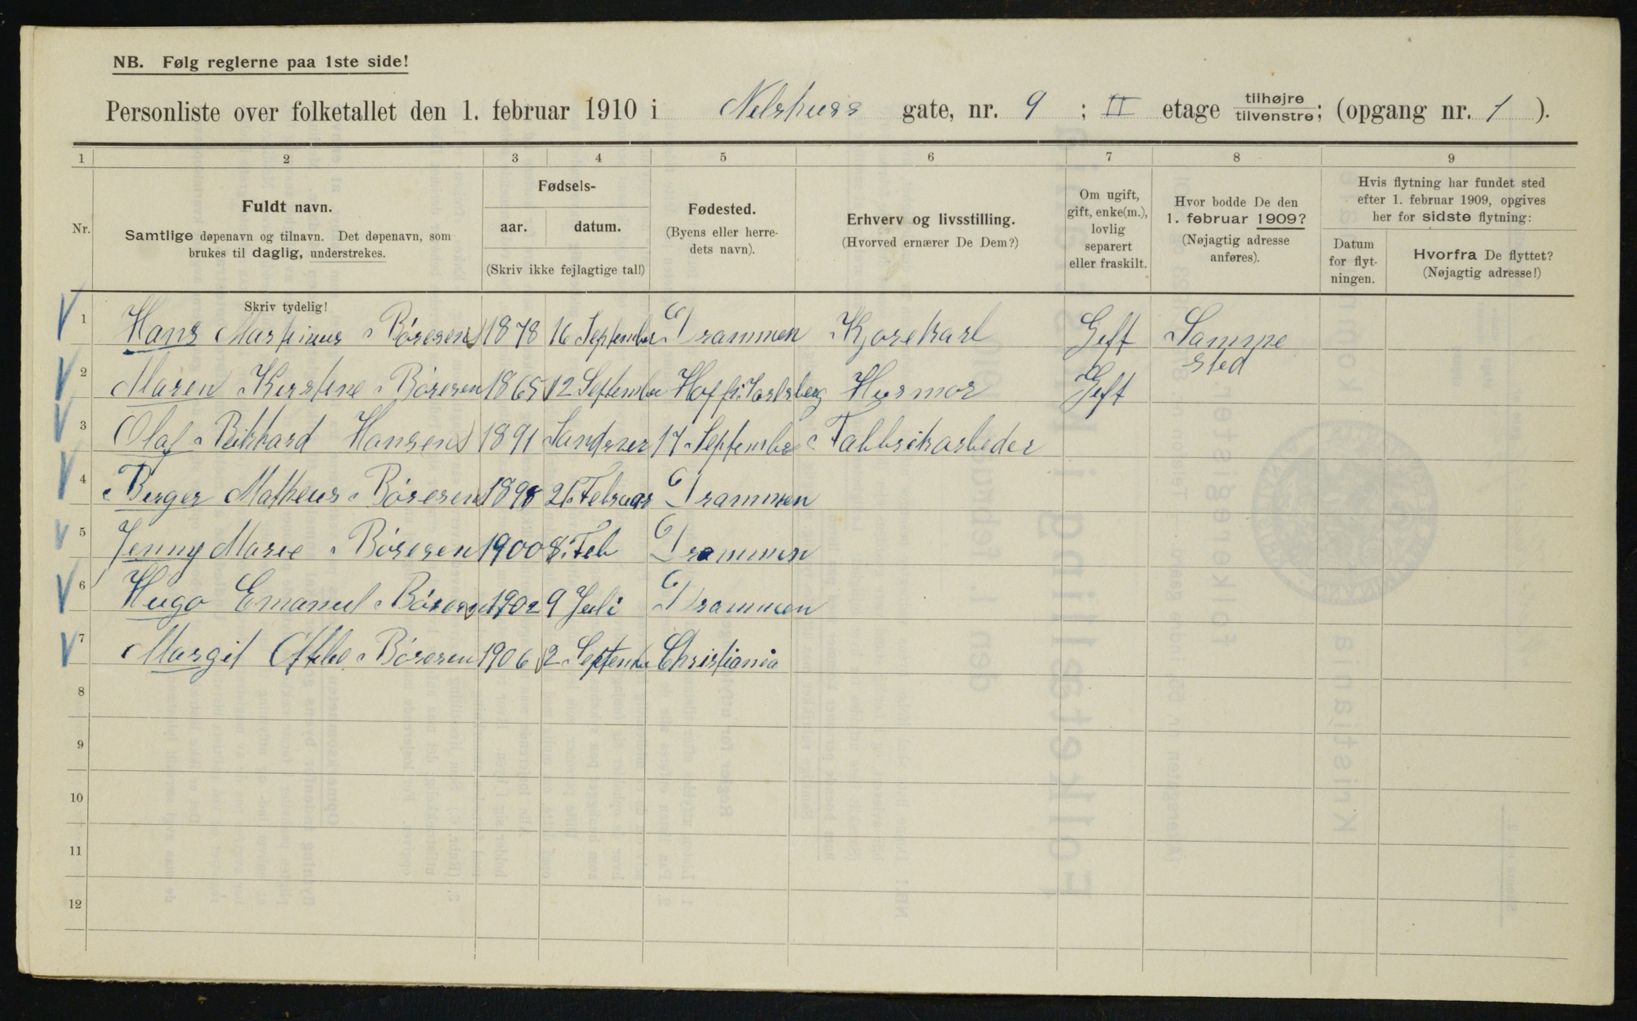 NB. Følg reglerne paa 1ste side!
Personliste over folketallet den 1. februar 1910 i Nelshuss gate, nr. 9 ; II etage tilhøjre tilvenstre; (opgang nr. 1 ).
1 2 3 4 5 6 7 8 9
Nr.
Fuldt navn.
Samtlige døpenavn og tilnavn. Det døpenavn, som
brukes til daglig, understrekes.
Skriv tydelig!
Fødsels-
aar. datum.
(Skriv ikke fejlagtige tal!)
Fødested.
(Byens eller herre-
dets navn).
Erhverv og livsstilling.
(Hvorved ernærer De Dem?)
Om ugift,
gift, enke(m.),
lovlig
separert
eller fraskilt.
Hvor bodde De den
1. februar 1909?
(Nøjagtig adresse
anføres).
Hvis flytning har fundet sted
efter 1. februar 1909, opgives
her for sidste flytning:
Datum
for flyt-
ningen.
Hvorfra De flyttet?
(Nøjagtig adresse!)
1 Hans Martinius Børesen 1878 16 September Drammen Kjørekarl Gift Samme sted
2 Maren Kirstine Børesen 1865 12 September Hoff i Jarlsberg Husmor Gift
3 Olaf Hansen 1891 17 September Fabbrikarbeder
4 Birger Matheus Børesen 1898 21 Februar Drammen
5 Jenny Marie Børesen 1900 8. Feb Drammen
6 Hugo Emanuel Børesen 1902 9 Juli Drammen
7 Margit Børesen 1906 2 September Christiania
8
9
10
11
12